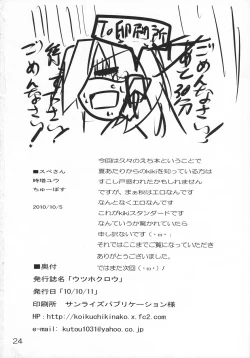 To印刷所
ごめんなさい!
あと30分
待って下さい!
ごめんなさい!
■スペさん
時増ユウ
ちゅーぼす
2010/10/5
今回は久々のえち本ということで
夏あたりからのkikiを知っている方は
すこし戸惑われたかもしれません
ですが、まぁ秋はエロなんです
なんとなくエロなんです
これがkikiスタンダードです
なんていうか驚かれていたら
申し訳ないです(・ω・;)
それではここまでご覧になっていただき
ありがとうございました。
ではまた次回(・ω・)ﾉ
■奥付
発行誌名「ウツホクロウ」
発行日「10/10/11」
印刷所 サンライズパブリケーション様
HP:http://koikuchikinako.x.fc2.com
e-mail: kutou1031@yahoo.co.jp
24